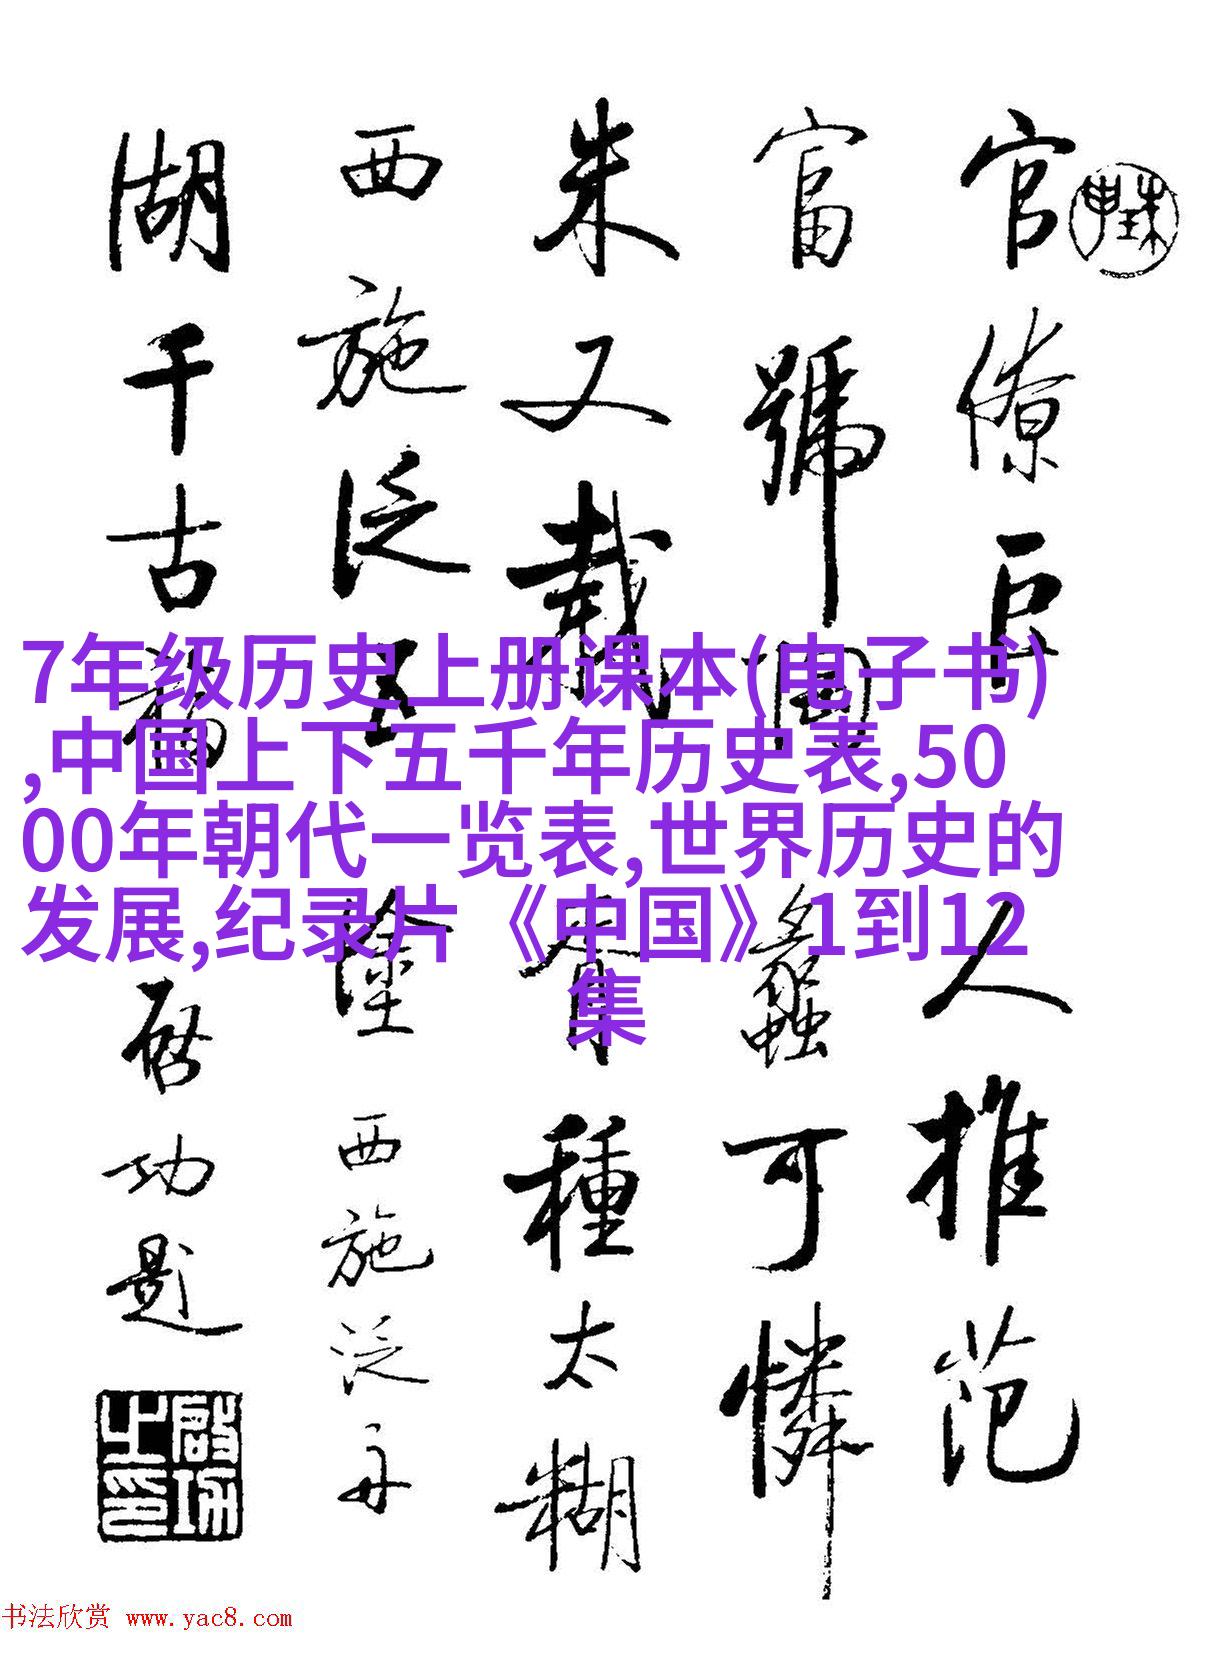 7年级历史上册课本(电子书)
,中国上下五千年历史表,50
00年朝代一览表,世界历史的
发展,纪录片《中国》1到12
集
官僚巨人推范
富號國蠡可憐
朱又載種太糊
西施泛五塗
西施泛舟
湖千古
啟功題
啟功之印
书法欣赏 www.yac8.com